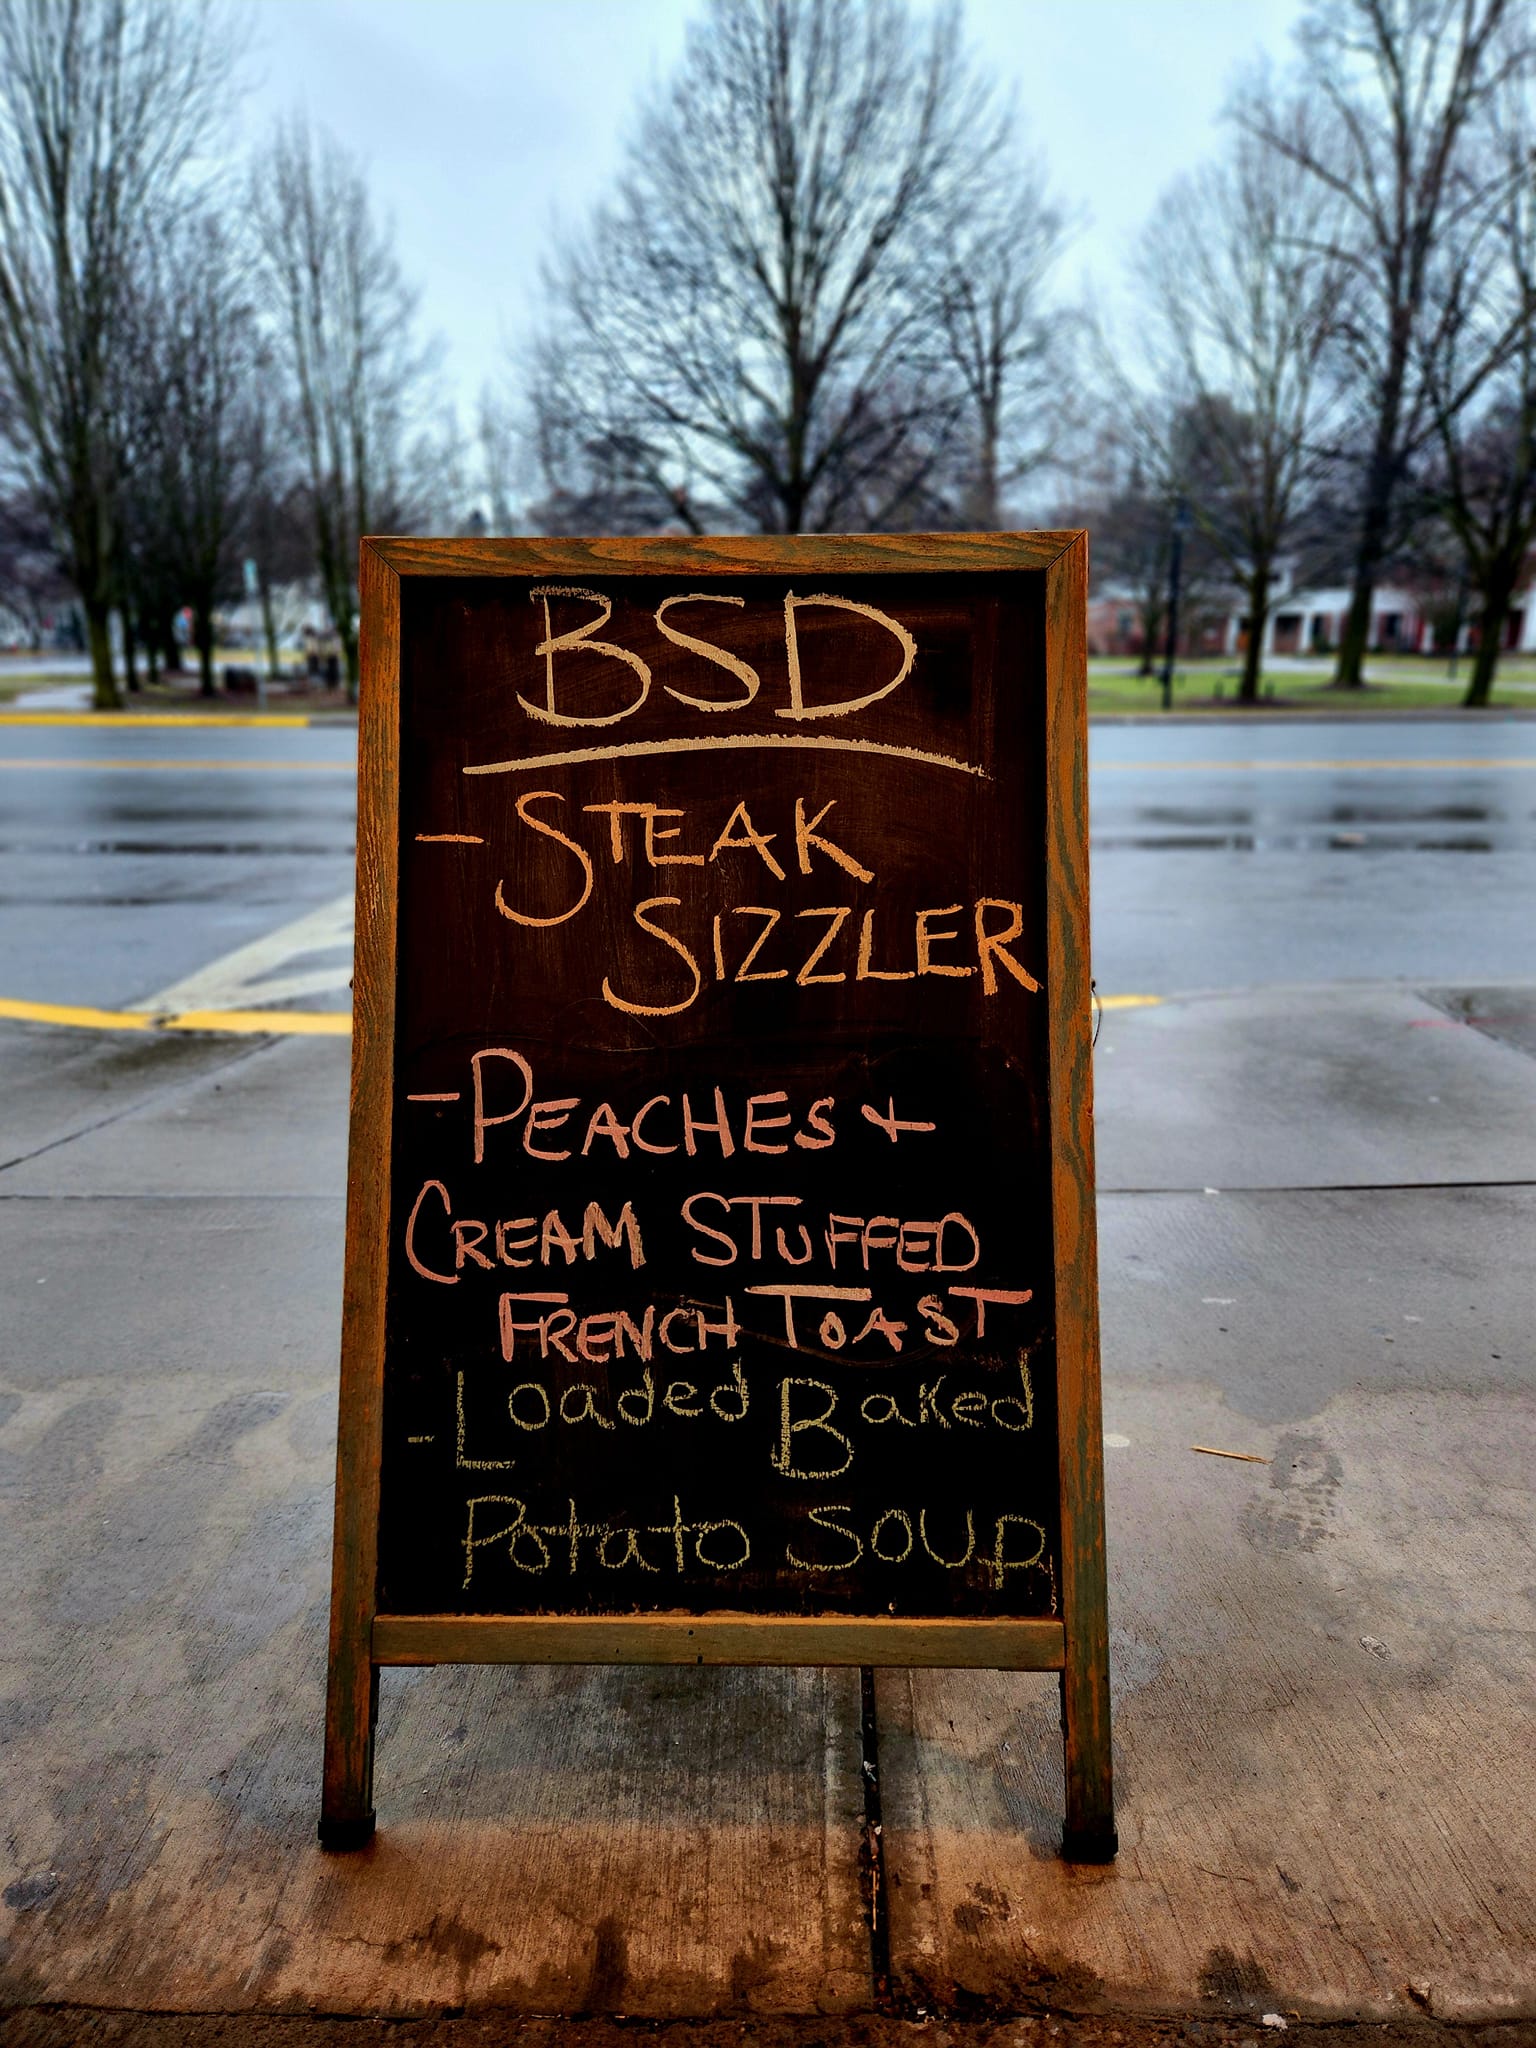 BSD
- STEAK
SIZZLER
- PEACHES +
CREAM STUFFED
FRENCH TOAST
- Loaded Baked
Potato Soup